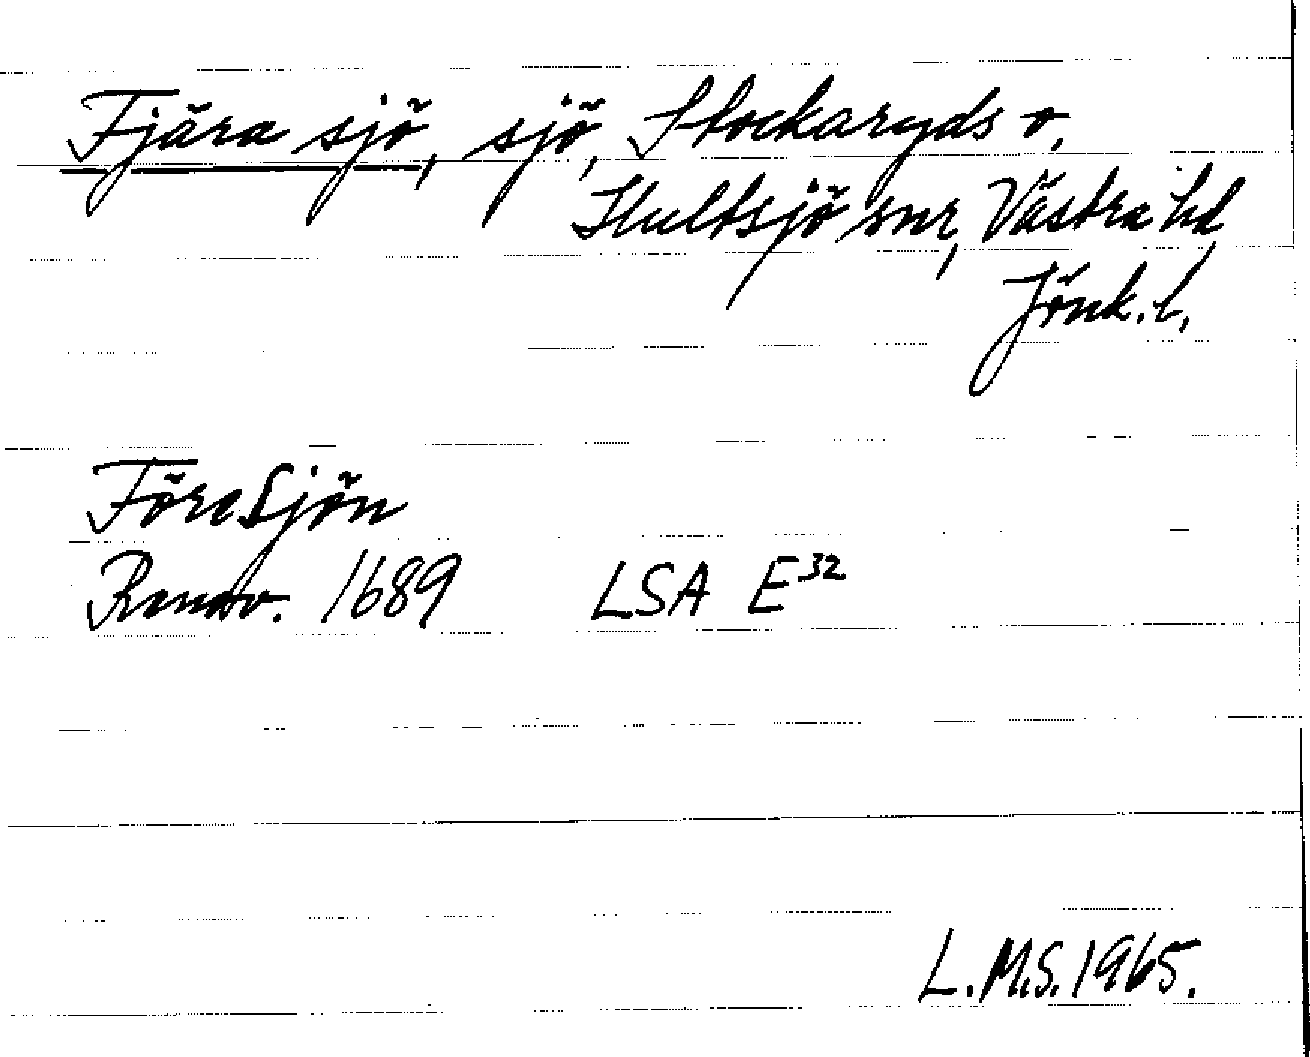 Fjära sjö, sjö, Stockaryds o.
Hultsjö snr, Västra hd,
Jönk. l.
FöreSjön
Renov. 1689 LSA E³²
L.M.S. 1965.